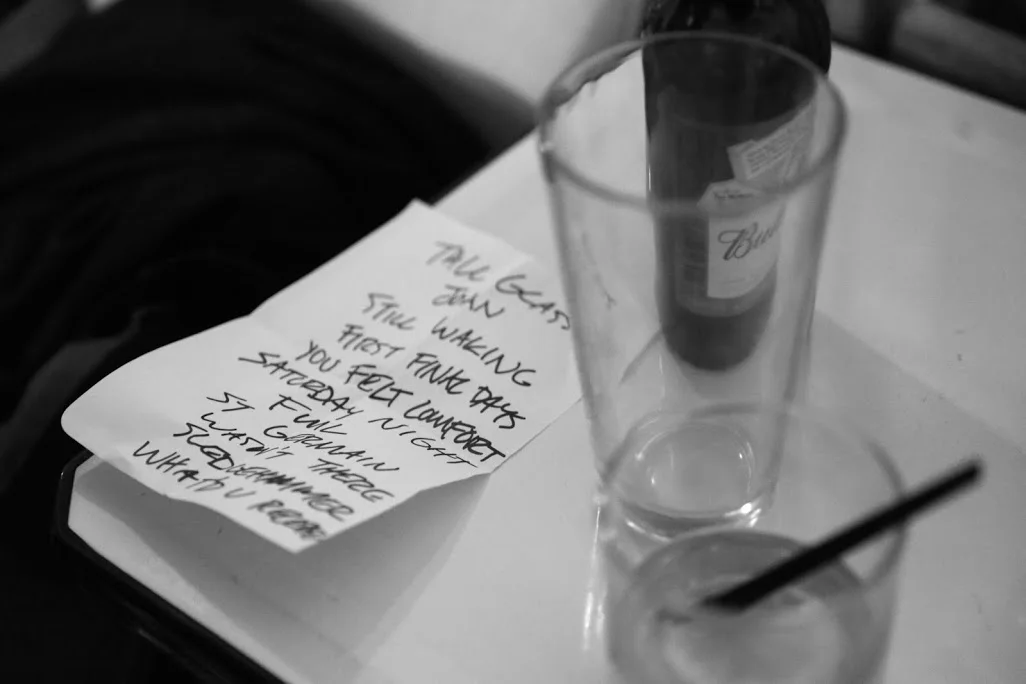 TALL GLASS
JOHN
STILL WAKING
FIRST FINAL DAYS
YOU FELT COMFORT
SATURDAY NIGHT
FUIL
ST GERMAIN
WASN'T THERE
SLEDGEHAMMER
WHAT'D U
Bud